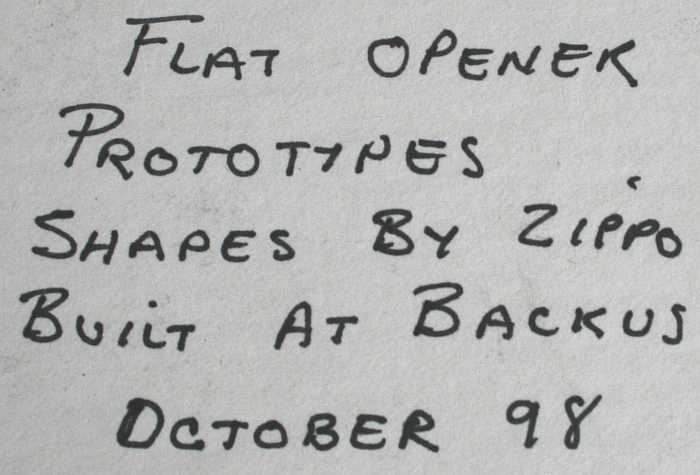 FLAT OPENER
PROTOTYPES
SHAPES BY ZIPPO
BUILT AT BACKUS
OCTOBER 98